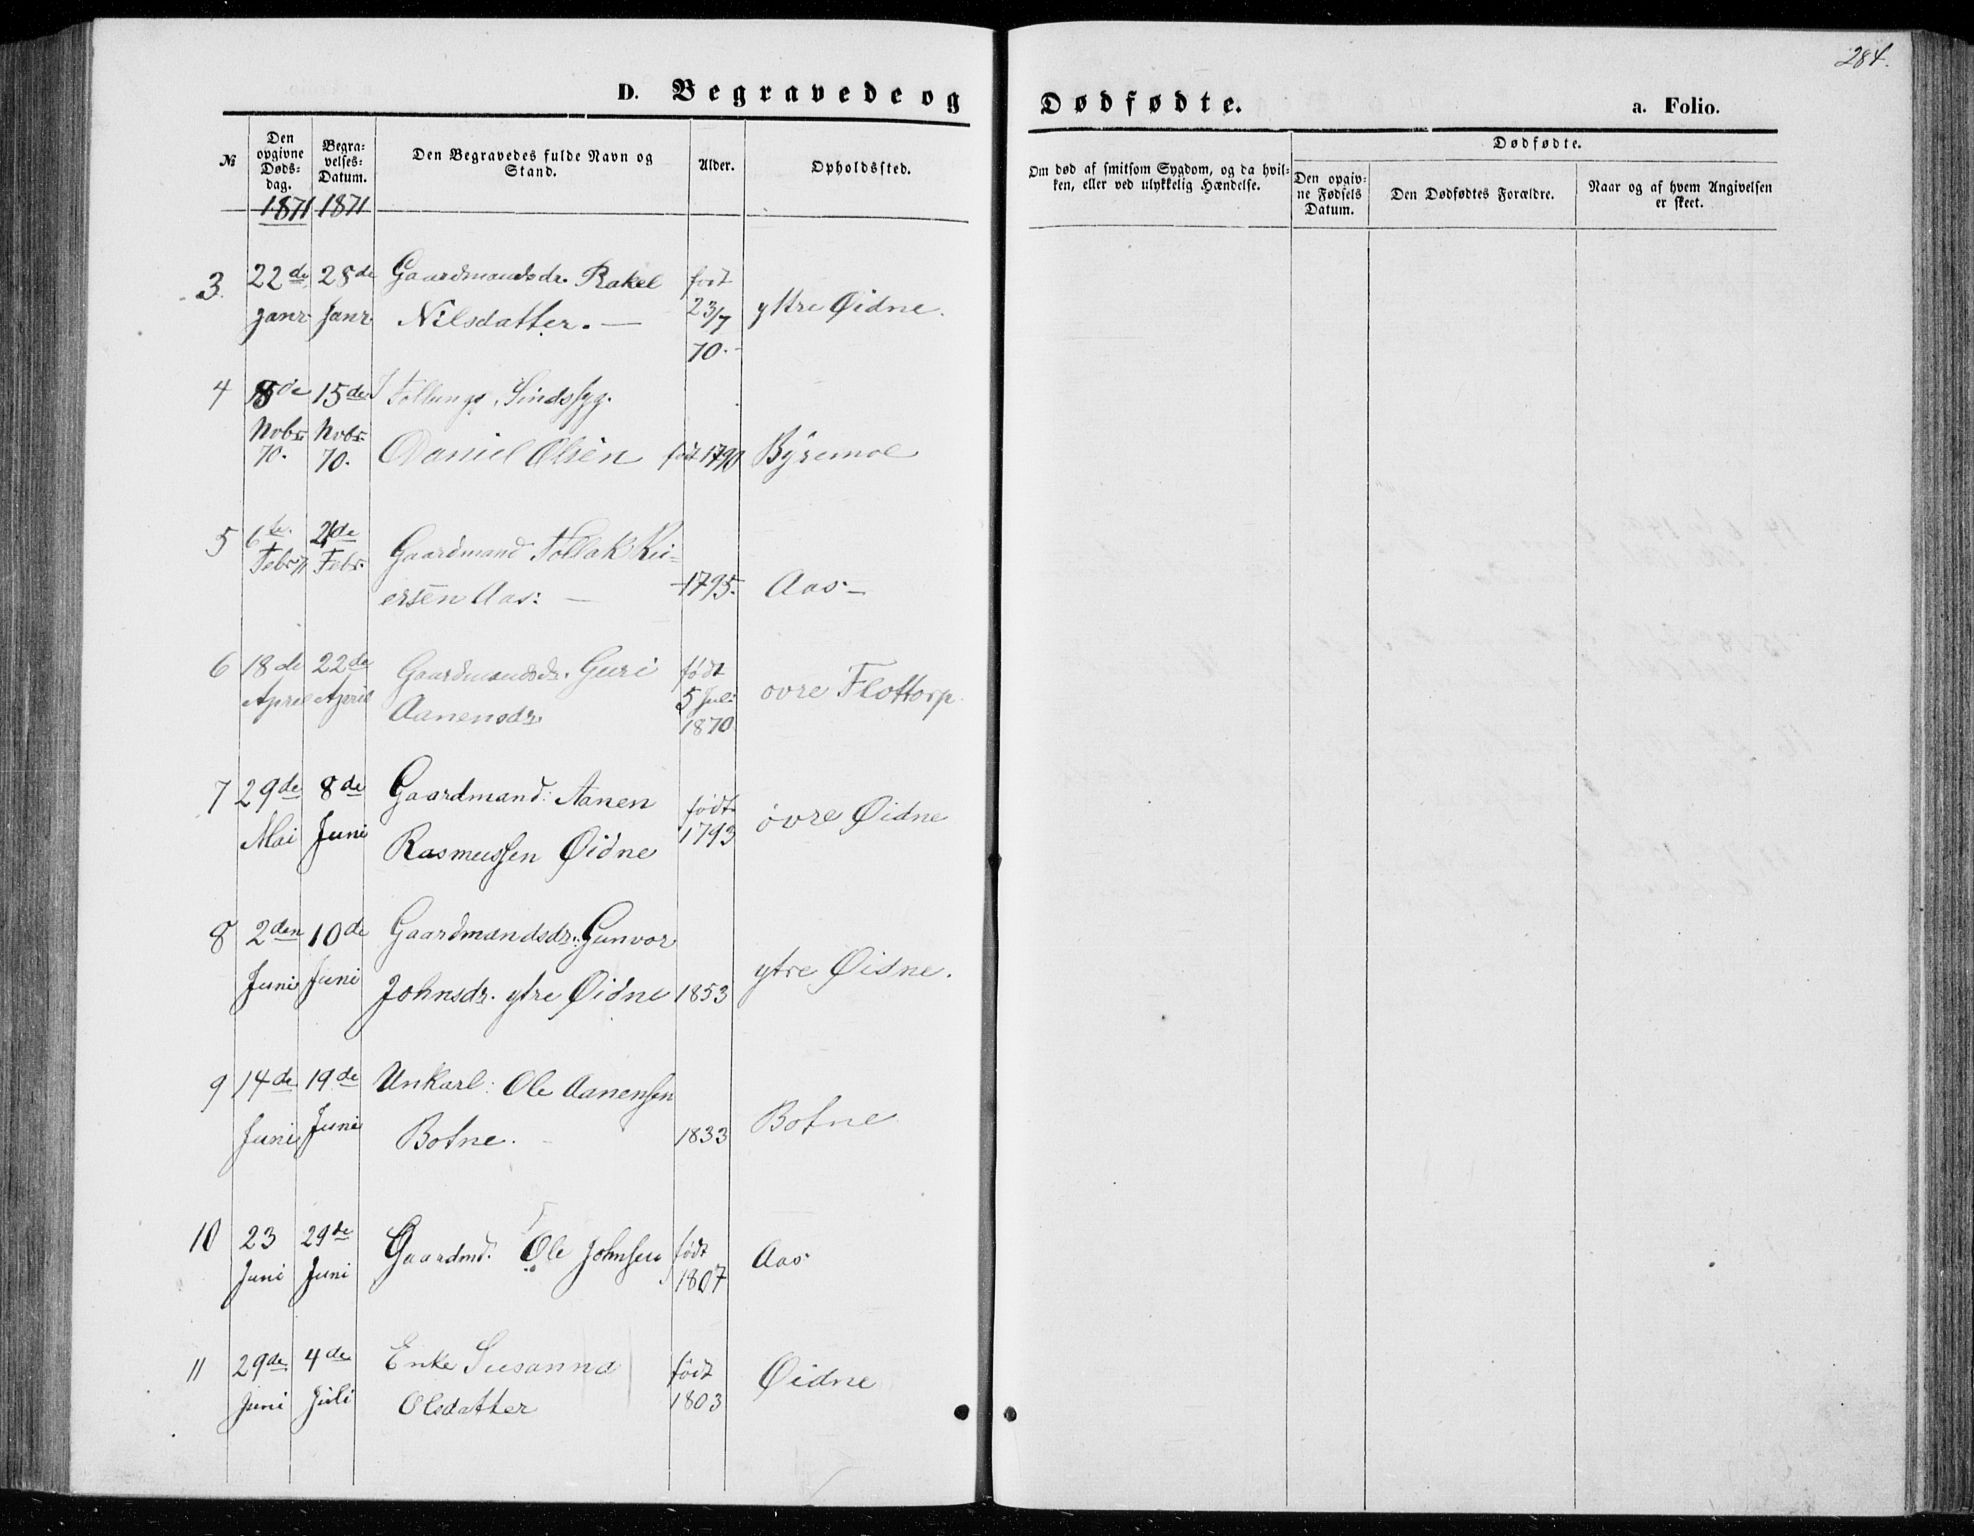 284.
D. Begravede og Dødfødte.
a. Folio.
№
Den opgivne Døds-dag.
Begra-velses-Datum.
Den Begravedes fulde Navn og Stand.
Alder.
Opholdssted.
Om død af smitsom Sygdom, og da hvil-ken, eller ved ulykkelig Hændelse.
Dødfødte.
Den opgiv-ne Fødsels Datum.
Den Dødfødtes Forældre.
Naar og af hvem Angivelsen er skeet.
1871 1871
3. 22de 28de Gaardmandsdr. Rakel født
Janr Janr Nilsdatter. — 23/7 yttre Øidne.
70.-
4 8de 15de Sindssyg.
Nobr. Nobr. Daniel Olsen født 1790 Byremoe
70. 70.
5 6te 21de Gaardmand Tollak Rei-
Febr 71 Febr ersen Aas: — 1795. Aas —
6 18de 22de Gaardmandsdr. Guri født
April April Aanensdr. 5 Juli øvre Flottorp.
1870
7 29de 8de Gaardmand: Aanen født
Mai Juni Rasmussen Øidne 1793 øvre Øidne
8 2den 10de Gaardmandsdr: Gunvor
Juni Juni Johnsdr. ytre Øidne 1853 ytre Øidne.
9 14de 19de Unkarl: Ole Aanensen
Juni Juni Botne. 1833 Botne
10 23 29de Gaardmd. Ole Johnsen født Aas
Juni Juni 1807
11 29de 4de Enke Susanna født Øidne
Juni Juli Olsdatter 1803